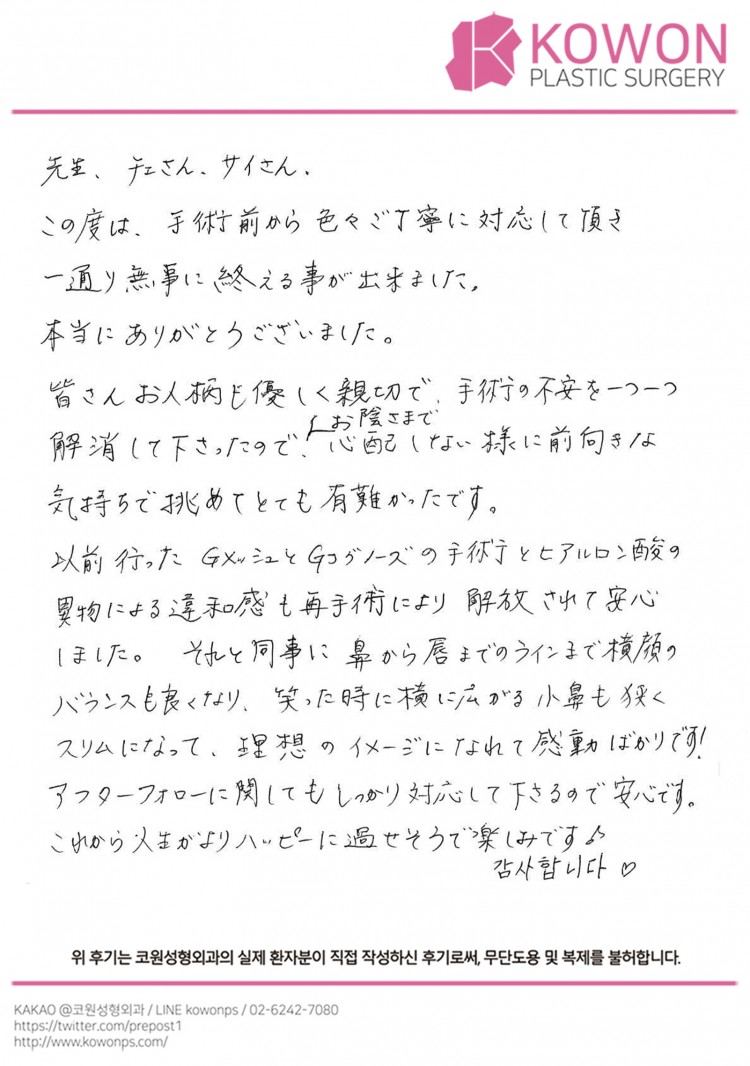 KOWON
PLASTIC SURGERY
先生、チェさん、サイさん、
この度は、手術前から色々ご丁寧に対応して頂き
一通り無事に終える事が出来ました。
本当にありがとうございました。
皆さんお人柄も優しく親切で、手術の不安を一つ一つ
お陰さまで
解消して下さったので、心配しない様に前向きな
気持ちで挑めてとても有難かったです。
以前行ったGメッシュとGコグノーズの手術とヒアルロン酸の
異物による違和感も再手術により解放されて安心
しました。 それと同事に鼻から唇までのラインまで横顔の
バランスも良くなり、笑った時に横に広がる小鼻も狭く
スリムになって、理想のイメージになれて感動ばかりです!
アフターフォローに関してもしっかり対応して下さるので安心です。
これから人生がよりハッピーに過せそうで楽しみです♪
감사합니다 ♡
위 후기는 코원성형외과의 실제 환자분이 직접 작성하신 후기로써, 무단도용 및 복제를 불허합니다.
KAKAO @코원성형외과 / LINE kowonps / 02-6242-7080
https://twitter.com/prepost1
http://www.kowonps.com/